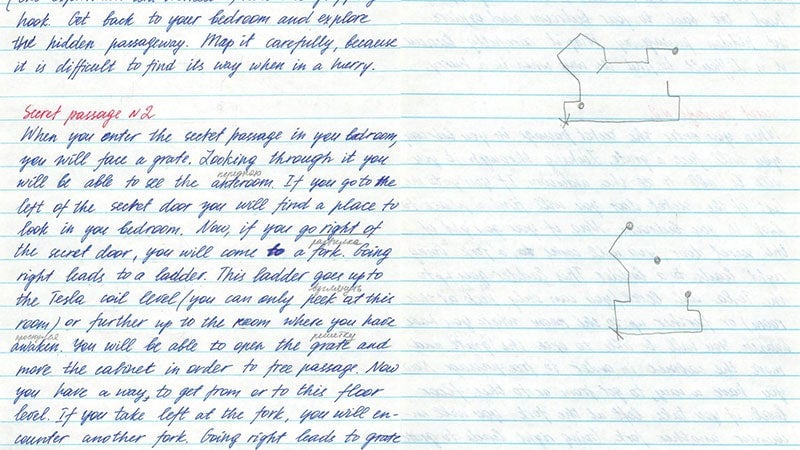 hook. Get back to your bedroom and explore
the hidden passageway. Map it carefully, because
it is difficult to find its way when in a hurry.
Secret passage N2
When you enter the secret passage in you bedroom,
you will face a grate. Looking through it you
переднюю
will be able to see the anteroom. If you go to the
left of the secret door you will find a place to
look in you bedroom. Now, if you go right of
развилка
the secret door, you will come to a fork. Going
right leads to a ladder. This ladder goes up to
the Tesla coil level (you can only peek at this
room) or further up to the room where you have
решетку
awaken. You will be able to open the grate and
move the cabinet in order to free passage. Now
you have a way, to get from or to this floor
level. If you take left at the fork, you will en-
counter another fork. Going right leads to grate